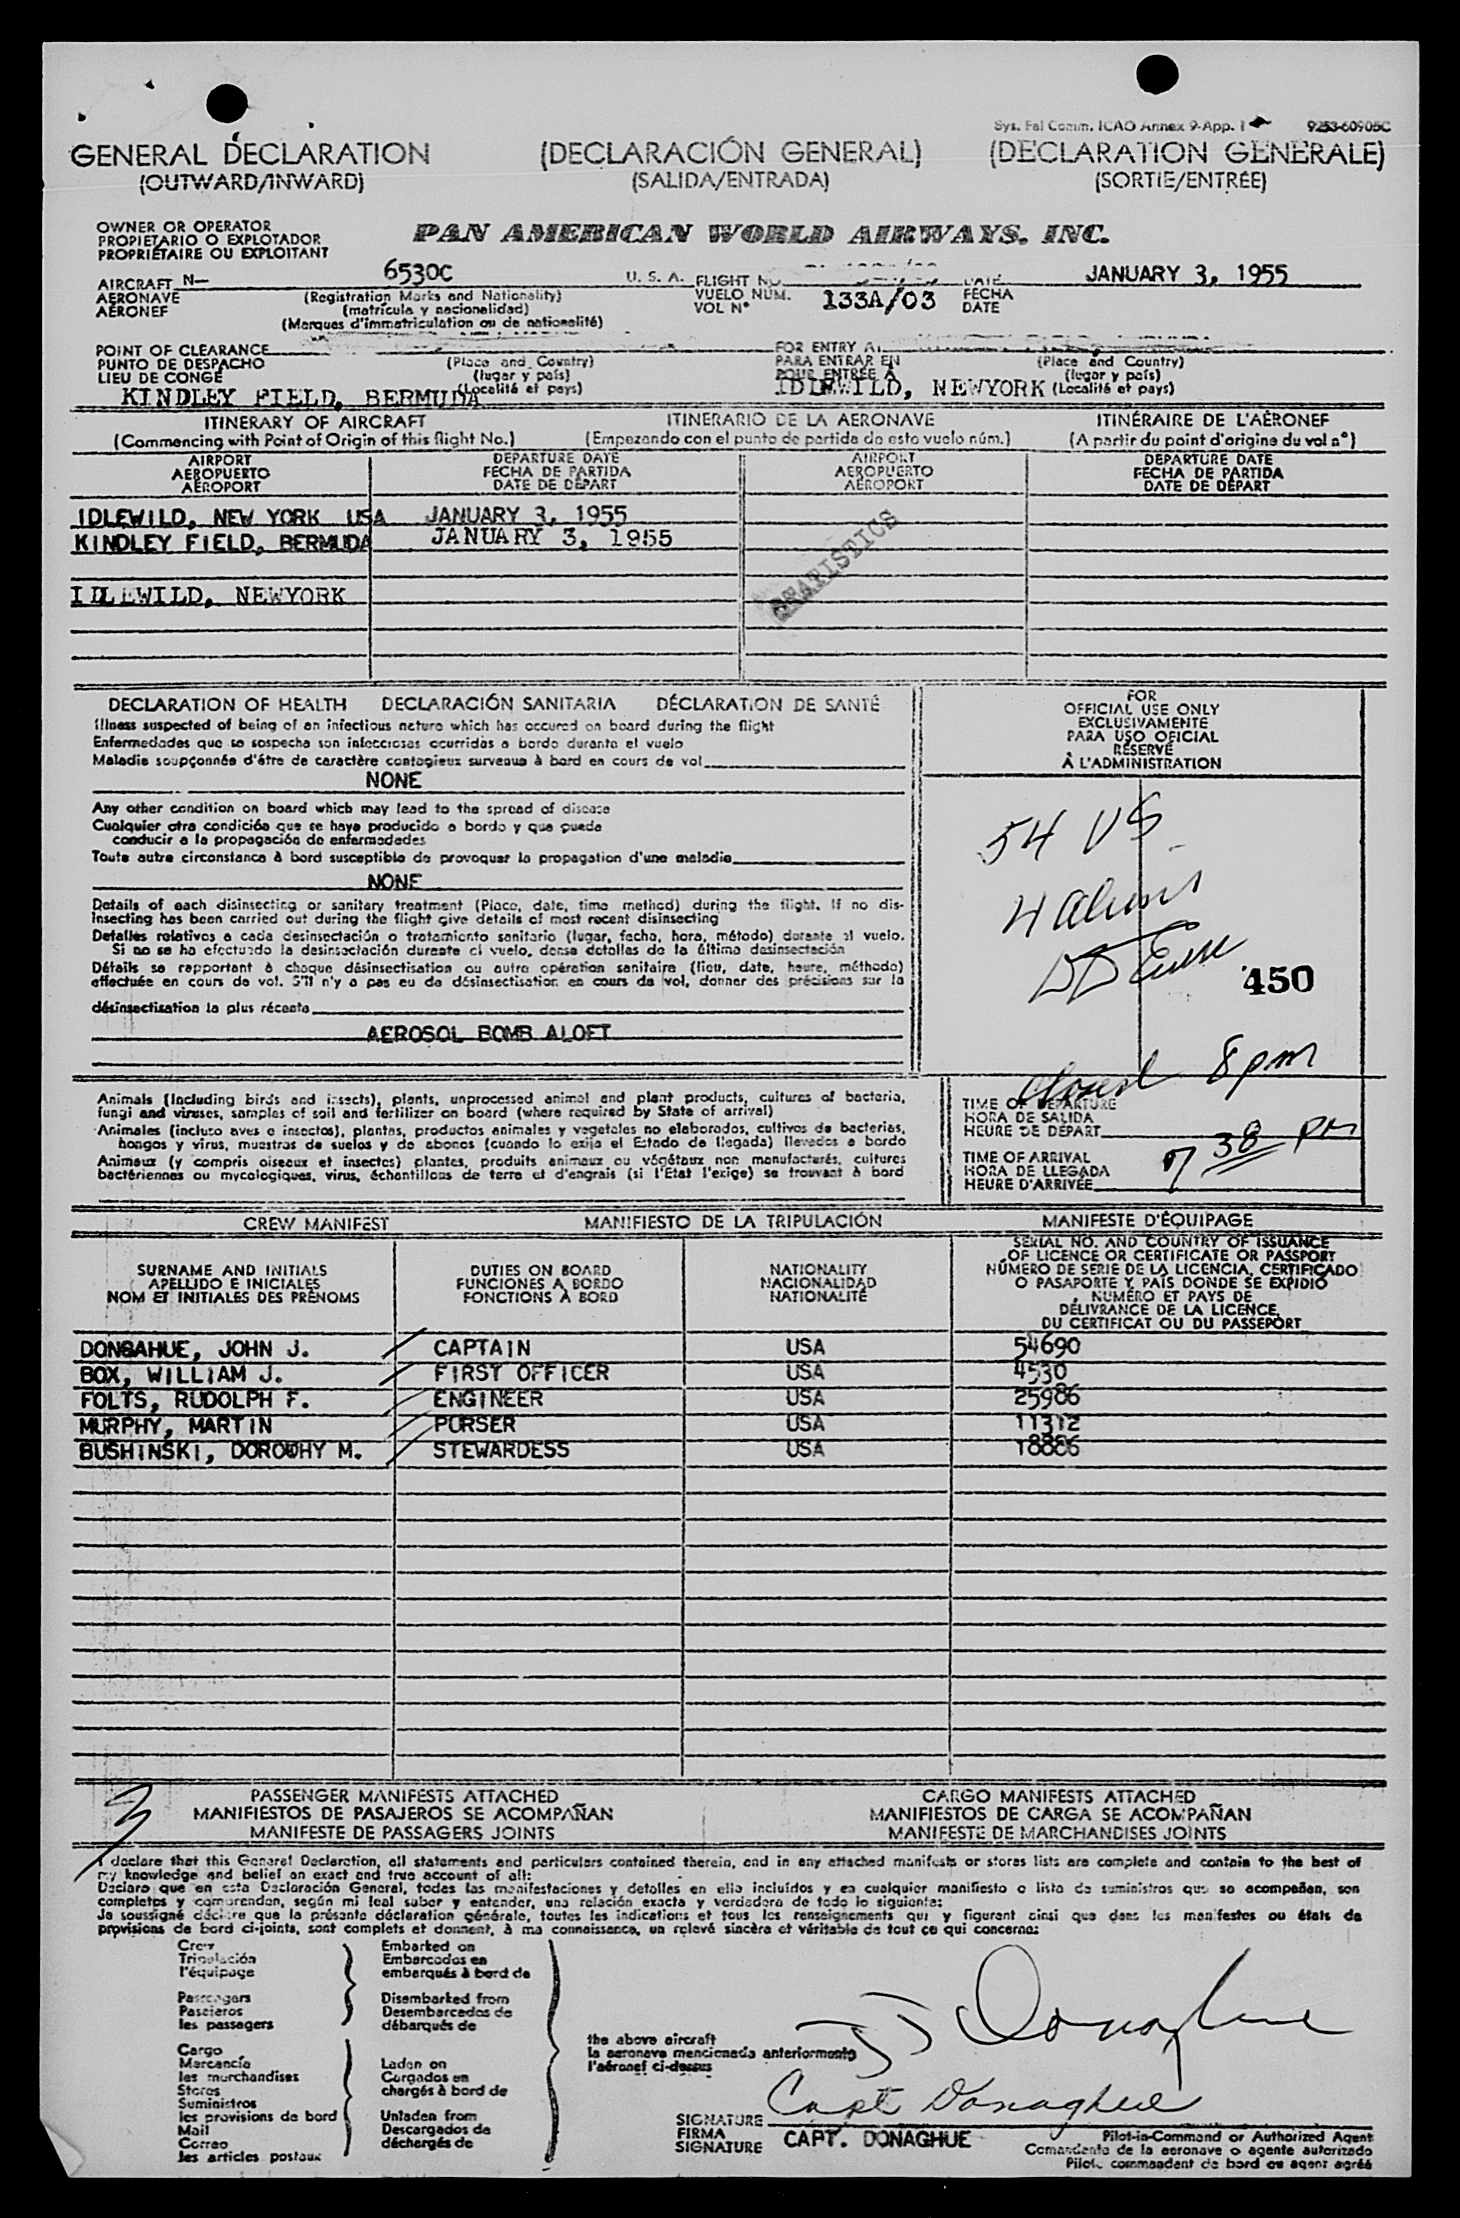 Sys. Fal Comm. ICAO Annex 9-App. 1
9253-60905C
GENERAL DECLARATION (DECLARACIÓN GENERAL) (DECLARATION GENERALE)
(OUTWARD/INWARD) (SALIDA/ENTRADA) (SORTIE/ENTRÉE)
OWNER OR OPERATOR
PROPIETARIO O EXPLOTADOR
PROPRIÉTAIRE OU EXPLOITANT
PAN AMERICAN WORLD AIRWAYS, INC.
AIRCRAFT N— 6530C U. S. A. FLIGHT NO. DATE JANUARY 3, 1955
AERONAVE (Registration Marks and Nationality) VUELO NÚM. 133A/03 FECHA
AÉRONEF (matrícula y nacionalidad) VOL N° DATE
(Marques d'immatriculation ou de nationalité)
POINT OF CLEARANCE FOR ENTRY AT
PUNTO DE DESPACHO (Place and Country) PARA ENTRAR EN (Place and Country)
LIEU DE CONGÉ (lugar y país) POUR ENTRÉE À (lugar y país)
KINDLEY FIELD, BERMUDA (Localité et pays) IDLEWILD, NEWYORK (Localité et pays)
ITINERARY OF AIRCRAFT ITINERARIO DE LA AERONAVE ITINÉRAIRE DE L'AÉRONEF
(Commencing with Point of Origin of this flight No.) (Empezando con el punto de partida de este vuelo núm.) (A partir du point d'origine du vol n°)
AIRPORT DEPARTURE DATE AIRPORT DEPARTURE DATE
AEROPUERTO FECHA DE PARTIDA AEROPUERTO FECHA DE PARTIDA
AÉROPORT DATE DE DÉPART AÉROPORT DATE DE DÉPART
IDLEWILD, NEW YORK USA JANUARY 3, 1955
KINDLEY FIELD, BERMUDA JANUARY 3, 1955
STATISTICS
IDLEWILD, NEWYORK
DECLARATION OF HEALTH DECLARACIÓN SANITARIA DÉCLARATION DE SANTÉ
Illness suspected of being of an infectious nature which has occured on board during the flight
Enfermedades que se sospecha son infecciosas ocurridas a bordo durante el vuelo
Maladie soupçonnée d'être de caractère contagieux survenue à bord en cours de vol
NONE
Any other condition on board which may lead to the spread of disease
Cualquier otra condición que se haya producido a bordo y que pueda
conducir a la propagación de enfermedades
Toute autre circonstance à bord susceptible de provoquer la propagation d'une maladie
NONE
Details of each disinsecting or sanitary treatment (Place, date, time method) during the flight. If no dis-
insecting has been carried out during the flight give details of most recent disinsecting
Detalles relativos a cada desinsectación o tratamiento sanitario (lugar, fecha, hora, método) durante el vuelo.
Si no se ha efectuado la desinsectación durante el vuelo, dense detalles de la última desinsectación
Détails se rapportant à chaque désinsectisation ou autre opération sanitaire (lieu, date, heure, méthode)
effectuée en cours de vol. S'il n'y a pas eu de désinsectisation en cours de vol, donner des précisions sur la
désinsectisation la plus récente
AEROSOL BOMB ALOFT
FOR
OFFICIAL USE ONLY
EXCLUSIVAMENTE
PARA USO OFICIAL
RÉSERVÉ
À L'ADMINISTRATION
54 US
4 Aliens
450
8 pm
Animals (Including birds and insects), plants, unprocessed animal and plant products, cultures of bacteria,
fungi and viruses, samples of soil and fertilizer on board (where required by State of arrival)
Animales (incluso aves e insectos), plantas, productos animales y vegetales no elaborados, cultivos de bacterias,
hongos y virus, muestras de suelos y de abonos (cuando lo exija el Estado de llegada) llevados a bordo
Animaux (y compris oiseaux et insectes) plantes, produits animaux ou végétaux non manufacturés, cultures
bactériennes ou mycologiques, virus, échantillons de terre et d'engrais (si l'Etat l'exige) se trouvant à bord
TIME OF DEPARTURE
HORA DE SALIDA
HEURE DE DÉPART
TIME OF ARRIVAL
HORA DE LLEGADA
HEURE D'ARRIVÉE
7 38 PM
CREW MANIFEST MANIFIESTO DE LA TRIPULACIÓN MANIFESTE D'ÉQUIPAGE
SURNAME AND INITIALS
APELLIDO E INICIALES
NOM ET INITIALES DES PRÉNOMS
DUTIES ON BOARD
FUNCIONES A BORDO
FONCTIONS À BORD
NATIONALITY
NACIONALIDAD
NATIONALITÉ
SERIAL NO. AND COUNTRY OF ISSUANCE
OF LICENCE OR CERTIFICATE OR PASSPORT
NÚMERO DE SERIE DE LA LICENCIA, CERTIFICADO
O PASAPORTE Y PAÍS DONDE SE EXPIDIÓ
NUMÉRO ET PAYS DE
DÉLIVRANCE DE LA LICENCE,
DU CERTIFICAT OU DU PASSEPORT
DONGAHUE, JOHN J. CAPTAIN USA 54690
BOX, WILLIAM J. FIRST OFFICER USA 4530
FOLTS, RUDOLPH F. ENGINEER USA 25986
MURPHY, MARTIN PURSER USA 11312
BUSHINSKI, DOROWHY M. STEWARDESS USA 18886
3
PASSENGER MANIFESTS ATTACHED CARGO MANIFESTS ATTACHED
MANIFIESTOS DE PASAJEROS SE ACOMPAÑAN MANIFIESTOS DE CARGA SE ACOMPAÑAN
MANIFESTE DE PASSAGERS JOINTS MANIFESTE DE MARCHANDISES JOINTS
I declare that this General Declaration, all statements and particulars contained therein, and in any attached manifests or stores lists are complete and contain to the best of
my knowledge and belief an exact and true account of all:
Declaro que en esta Declaración General, todas las manifestaciones y detalles en ella incluídos y en cualquier manifiesto o lista de suministros que se acompañan, son
completos y comprenden, según mi leal saber y entender, una relación exacta y verdadera de todo lo siguiente:
Je soussigné déclare que la présente déclaration générale, toutes les indications et tous les renseignements qui y figurent ainsi que dans les manifestes ou états de
provisions de bord ci-joints, sont complets et donnent, à ma connaissance, un relevé sincère et véritable de tout ce qui concerne:
Crew
Tripulación
l'équipage
Passengers
Pasajeros
les passagers
Cargo
Mercancía
les marchandises
Stores
Suministros
les provisions de bord
Mail
Correo
les articles postaux
Embarked on
Embarcados en
embarqués à bord de
Disembarked from
Desembarcados de
débarqués de
Laden on
Cargados en
chargés à bord de
Unladen from
Descargados de
déchargés de
the above aircraft
la aeronave mencionada anteriormente
l'aéronef ci-dessus
J J Donaghue
Capt Donaghue
SIGNATURE
FIRMA
SIGNATURE
CAPT. DONAGHUE
Pilot-in-Command or Authorized Agent
Comandante de la aeronave o agente autorizado
Pilote commandant de bord ou agent agréé